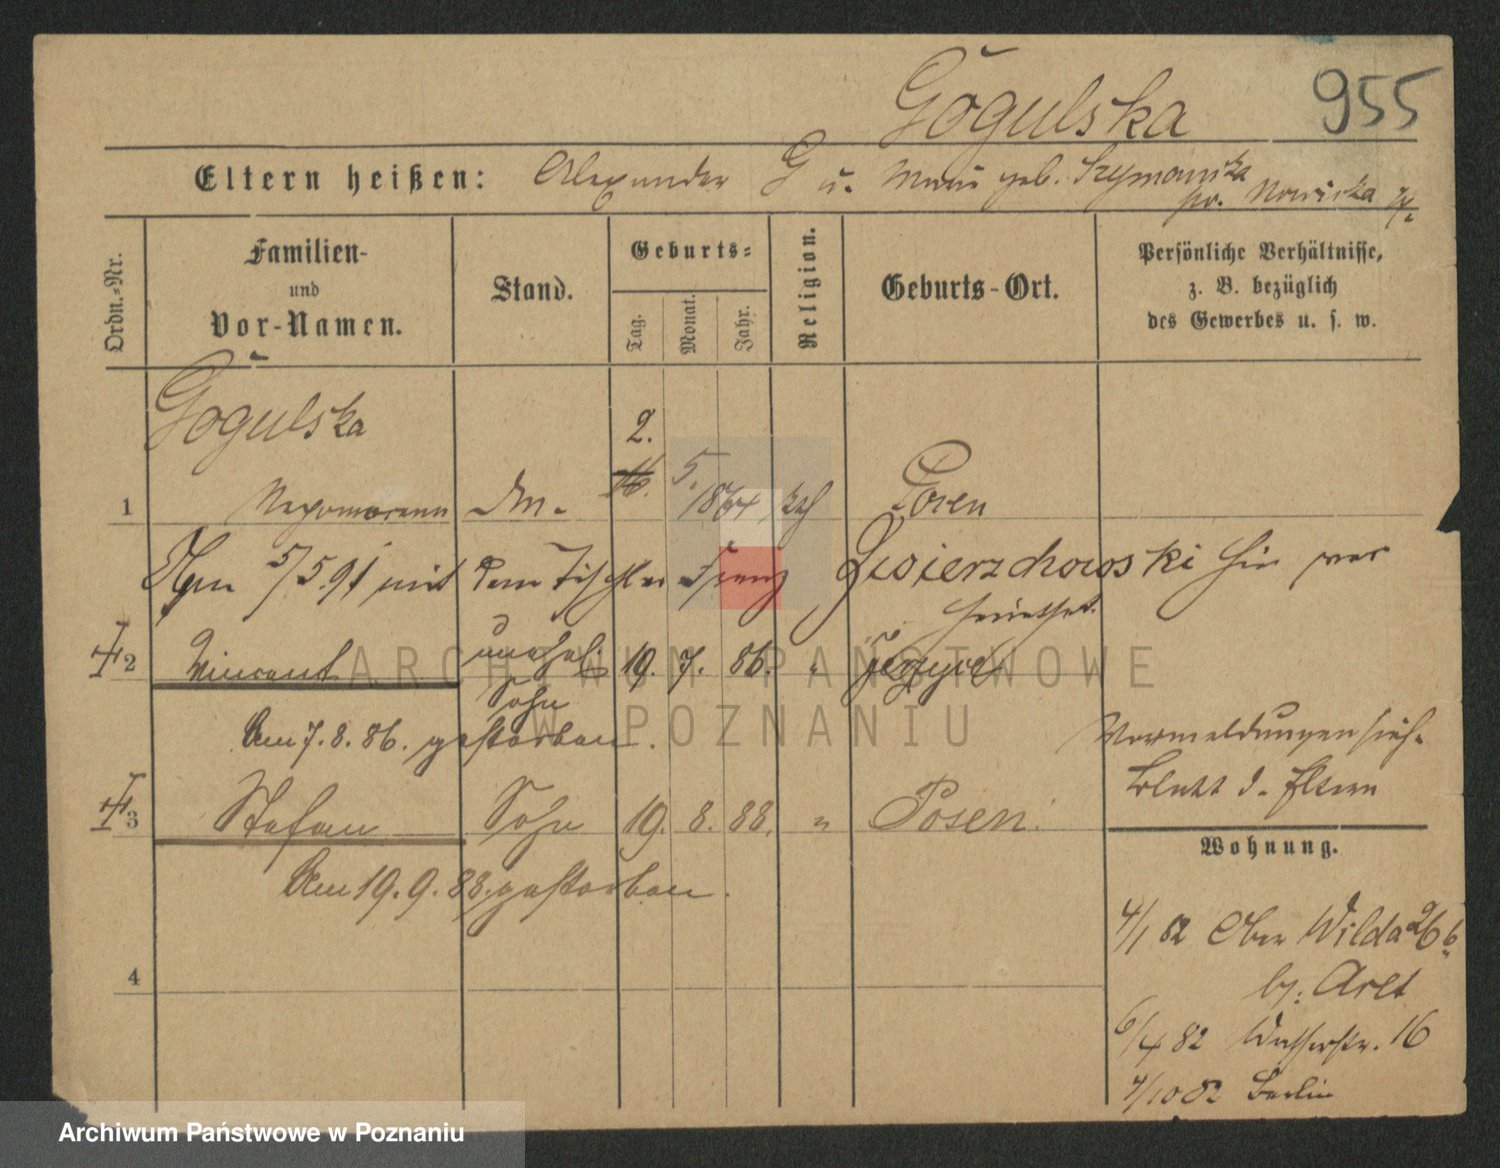 Gogulska 955
Eltern heißen: Alexander G u. Marie geb. Szymanska
pr. Nowicka
Ordn.-Nr.
Familien-
und
Vor-Namen.
Stand.
Geburts-
Tag.
Monat.
Jahr.
Religion.
Geburts-Ort.
Persönliche Verhältnisse,
z. B. bezüglich
des Gewerbes u. s. w.
Gogulska
2.
1 Nepomucena 16. 5. 1864 kth Posen
5/5.91 mit dem Tischler Franz Swierzchowski hier ver
heirathet.
2 Vincent unehel. 19. 7. 86. " Jerzyce
Sohn
Am 7. 8. 86. gestorben.
Vermeldungen sieh.
Blatt d. Eltern
3 Stefan Sohn 19. 8. 88. " Posen.
Wohnung.
Am 19. 9. 88. gestorben.
4/1 82 Ober Wilda 26 b
4
by. Arlt
6/4 82 Wasserstr. 16
4/10 82 Berlin
ARCHIWUM PAŃSTWOWE
W POZNANIU
Archiwum Państwowe w Poznaniu